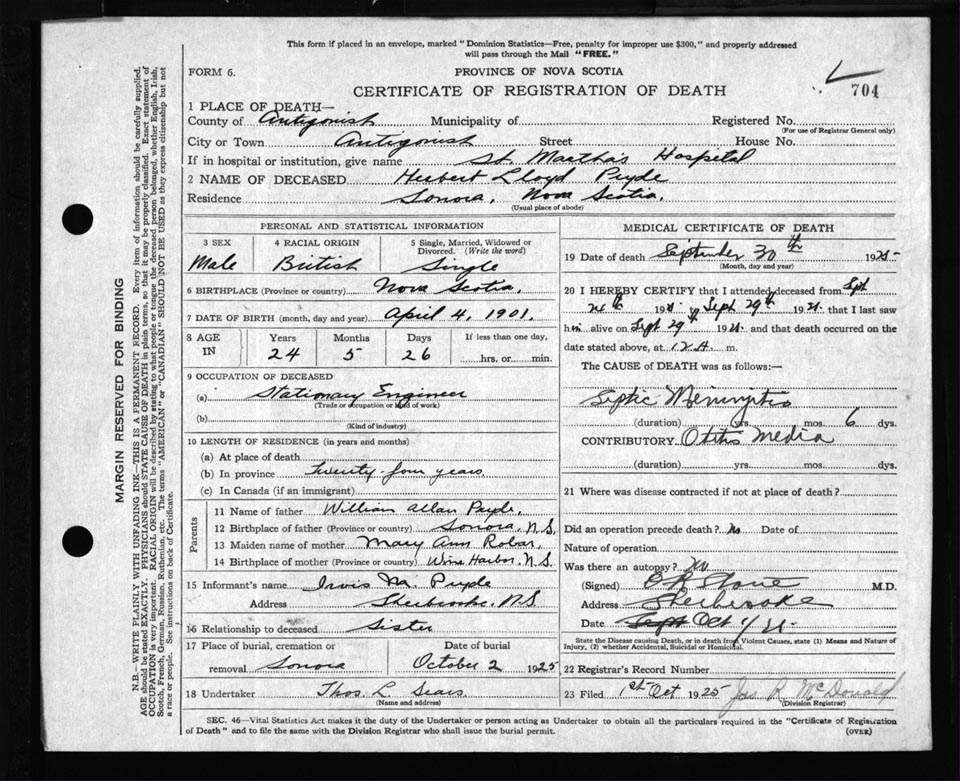 This form if placed in an envelope, marked "Dominion Statistics—Free, penalty for improper use $300," and properly addressed
will pass through the Mail "FREE."
FORM 6.
PROVINCE OF NOVA SCOTIA
CERTIFICATE OF REGISTRATION OF DEATH
704
1 PLACE OF DEATH—
County of Antigonish Municipality of Registered No.
(For use of Registrar General only)
City or Town Antigonish Street House No.
If in hospital or institution, give name St. Martha's Hospital
2 NAME OF DECEASED Herbert Lloyd Pryde
Residence Sonora, Nova Scotia.
(Usual place of abode)
MARGIN RESERVED FOR BINDING
N.B.—WRITE PLAINLY WITH UNFADING INK—THIS IS A PERMANENT RECORD. Every item of information should be carefully supplied.
AGE should be stated EXACTLY. PHYSICIANS should STATE CAUSE OF DEATH in plain terms, so that it may be properly classified. Exact statement of
OCCUPATION is very important. RACIAL ORIGIN will be described by stating to what people or tongue the deceased person belonged, whether English, Irish,
Scotch, French, German, Russian, Ruthenian, etc. The terms "AMERICAN" or "CANADIAN" SHOULD NOT BE USED as they express citizenship but not
a race or people. See instructions on back of Certificate.
PERSONAL AND STATISTICAL INFORMATION
3 SEX
Male
4 RACIAL ORIGIN
British
5 Single, Married, Widowed or
Divorced. (Write the word)
Single
6 BIRTHPLACE (Province or country) Nova Scotia.
7 DATE OF BIRTH (month, day and year) April 4, 1901.
8 AGE IN
Years Months Days If less than one day,
24 5 26 hrs. or min.
9 OCCUPATION OF DECEASED
(a) Stationary Engineer
(Trade or occupation or kind of work)
(b)
(Kind of industry)
10 LENGTH OF RESIDENCE (in years and months)
(a) At place of death
(b) In province twenty four years
(c) In Canada (if an immigrant)
Parents
11 Name of father William Allan Pryde,
12 Birthplace of father (Province or country) Sonora, N.S.
13 Maiden name of mother Mary Ann Robar,
14 Birthplace of mother (Province or country) Wine Harbor, N.S.
15 Informant's name Irvis M. Pryde
Address Sherbrooke, N.S.
16 Relationship to deceased Sister
17 Place of burial, cremation or
removal Sonora
Date of burial
October 2 1925
18 Undertaker Thos. L Sears
(Name and address)
MEDICAL CERTIFICATE OF DEATH
19 Date of death September 30th 1925
(Month, day and year)
20 I HEREBY CERTIFY that I attended deceased from Sept
24th 192 Sept 29th 192 that I last saw
him alive on Sept 29th 192 and that death occurred on the
date stated above, at 12 A. m.
The CAUSE of DEATH was as follows:—
Septic Meningitis
(duration) yrs. mos. 6 dys.
CONTRIBUTORY Otitis Media
(duration) yrs. mos. dys.
21 Where was disease contracted if not at place of death?
Did an operation precede death? No Date of
Nature of operation
Was there an autopsy? No
(Signed) M.D.
Address Sherbrooke
Date Sept Oct 1/
State the Disease causing Death, or in death from Violent Causes, state (1) Means and Nature of
Injury, (2) whether Accidental, Suicidal or Homicidal.
22 Registrar's Record Number
23 Filed 1st Oct 1925 Jas R McDonald
(Division Registrar)
SEC. 46—Vital Statistics Act makes it the duty of the Undertaker or person acting as Undertaker to obtain all the particulars required in the "Certificate of Registration
of Death" and to file the same with the Division Registrar who shall issue the burial permit.
(OVER)